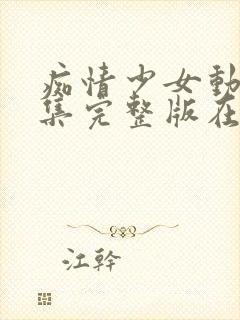 痴情少女動
集完整版在
江幹